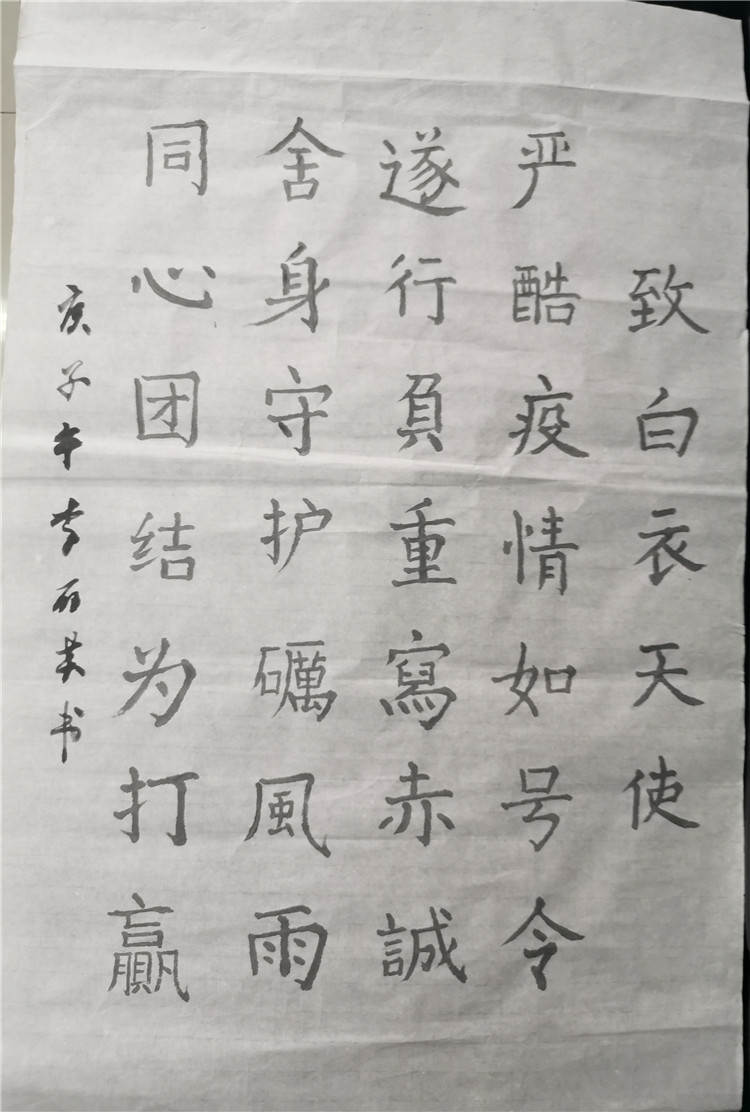 致白衣天使
严酷疫情如号令
遂行負重寫赤誠
舍身守护礪風雨
同心团结为打赢
庚子年李丽英书